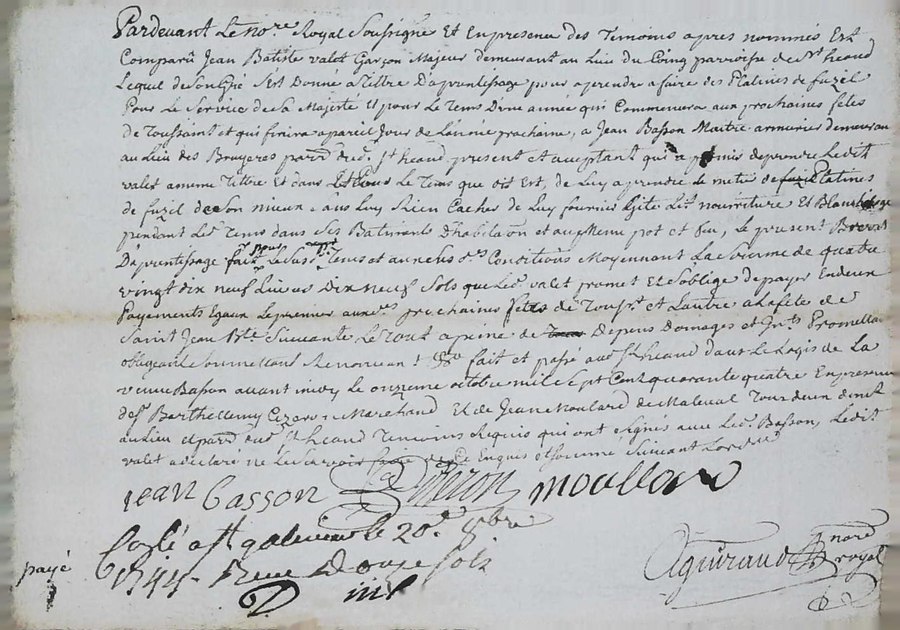 Pardevant Le no.re Royal Soussigne Et En presence des Temoins apres nommés Est
Comparû Jean Batiste valet Garçon Majeur demeurant au Lieu du Coing parroisse de S.t heand
Lequel de Son Gré S'est Donné a Tittre D'aprentissage pour aprendre a faire des Platines de fuzil
Pour Le Service de Sa Majesté Et pour Le Tems D'une année qui Commencera aux prochaines fétes
de Toussaint et qui finira a pareil Jour de L'année prochaine, a Jean Basson Maitre armurier demeurant
au Lieu des Bruyeres par.se dud. S.t heand present et acceptant qui a promis deprendre Ledit
valet au meme Tittre Et dans Le Tems que dit Est, de Luy aprendre Le metié de Platines
de fuzil de Son mieux Sans Luy Rien Cacher de Luy fournir Gite Lit nourriture Et Blanchissage
pendant Led. Tems dans Ses Batiments D'habitaon et au Meme pot et feu, Le present Brevet
D'aprentissage fait pour Le Susd. Tems et annee Conditions Moyennant La Somme de quatre
vingt dix neuf Livres Dix Neuf Sols que Led. valet promet Et S'oblige de payer En deux
Payements Egaux Le premier aux d.es prochaines fétes de Touss.t et L'autre a La féte de
Saint Jean B.te Suivante Le Tout a peine de Depens Domages et Int.ts Promettant
obligeant Soumettant Renonceant fait et passé aud. S.t heand dans Le Logis de La
veuve Basson avant midy Le onzieme octobre mil Sept Cent quarante quatre En presence
de S.r Barthelemy Marchand Et de Jean Moulard de Maleval
au Lieu et par.se dud. S.t heand Temoins Requis qui ont Signés avec Led. Basson, Ledit
valet a declaré ne Le Scavoir faire de Ce Enquis et Sommé Suivant L'ord.ce
jean basson moullard
Controlé a S.t galmier le 20.e 8bre
1744 Douze Sols
payé
Aguiraud no.re royal